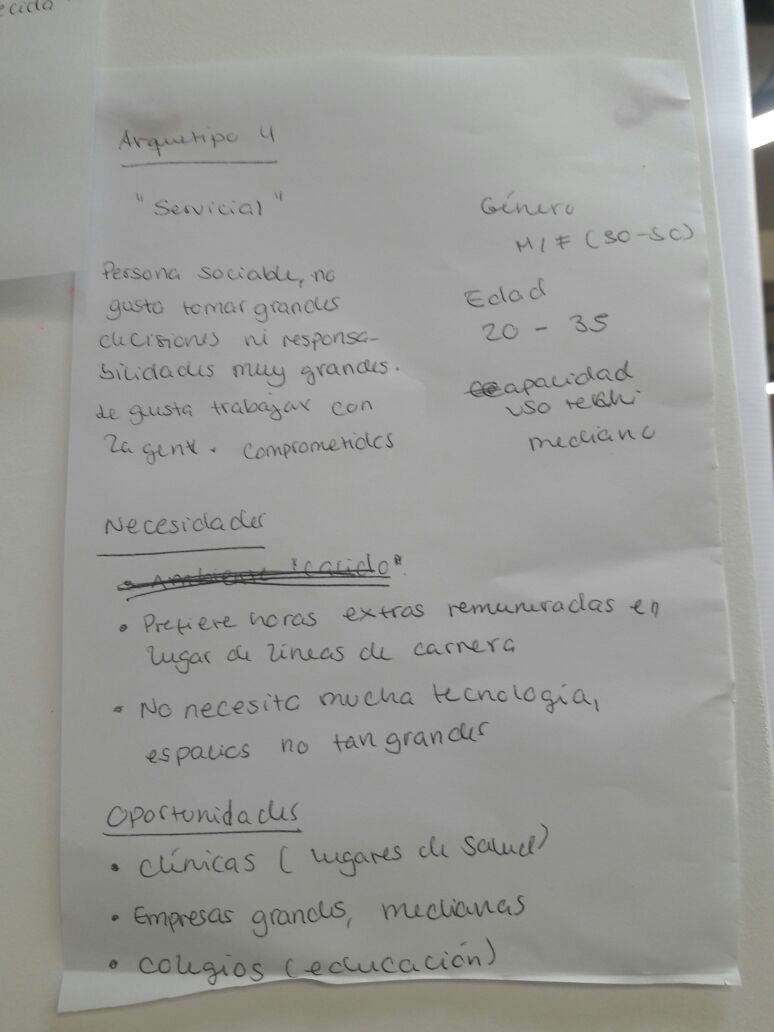 ecida
Arquetipo 4
"Servicial"
Persona sociable, no
gusta tomar grandes
decisiones ni responsa-
bilidades muy grandes.
le gusta trabajar con
la gente. comprometidos
Género
M/F (50-50)
Edad
20 - 35
capacidad
uso
mediano
Necesidades
• Ambiente "calido"
• Prefiere horas extras remuneradas en
lugar de líneas de carrera
• No necesita mucha tecnología,
espacios no tan grandes
Oportunidades
• clínicas (lugares de salud)
• Empresas grandes, medianas
• colegios (educación)